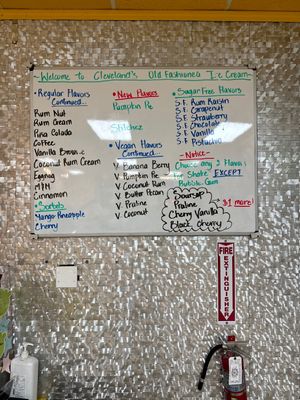 ~Welcome to Cleveland's Old Fashioned Ice Cream~
• Regular Flavors
Continued...
Rum Nut
Rum Cream
Pina Colada
Coffee
Vanilla
Coconut Rum Cream
Eggnog
Cinnamon
• Sorbets
Mango Pineapple
Cherry
• New Flavors
Pumpkin Pie
• Vegan Flavors
Continued...
V. Banana Berry
V. Pumpkin Pie
V. Coconut Rum
V. Butter Pecan
V. Praline
V. Coconut
• Sugar Free Flavors
S.F. Rum Raisin
S.F. Grapenut
S.F. Strawberry
S.F. Chocolate
S.F. Vanilla
S.F. Pistachio
~Notice~
Choose any 2 Flavors
For Shake EXCEPT
Bubble Gum
Soursop
Praline
Cherry Vanilla
Black Cherry
$1 more!
FIRE
EXTINGUISHER